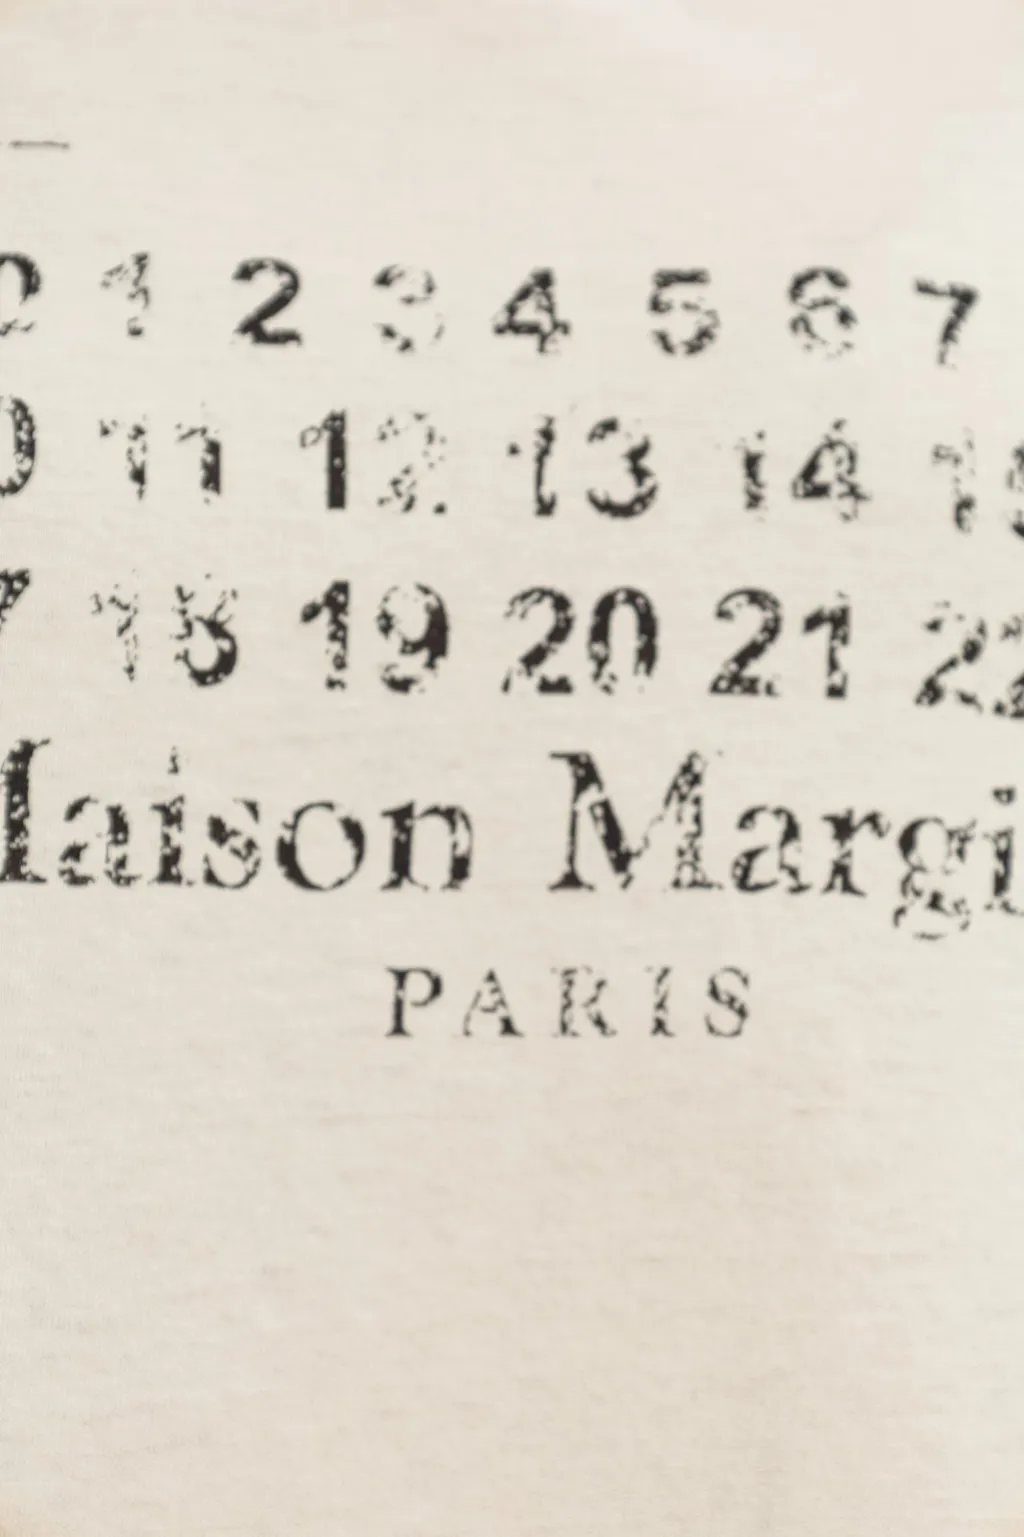 0 1 2 3 4 5 6 7
0 11 12 13 14 1
18 19 20 21 22
aison Margi
PARIS